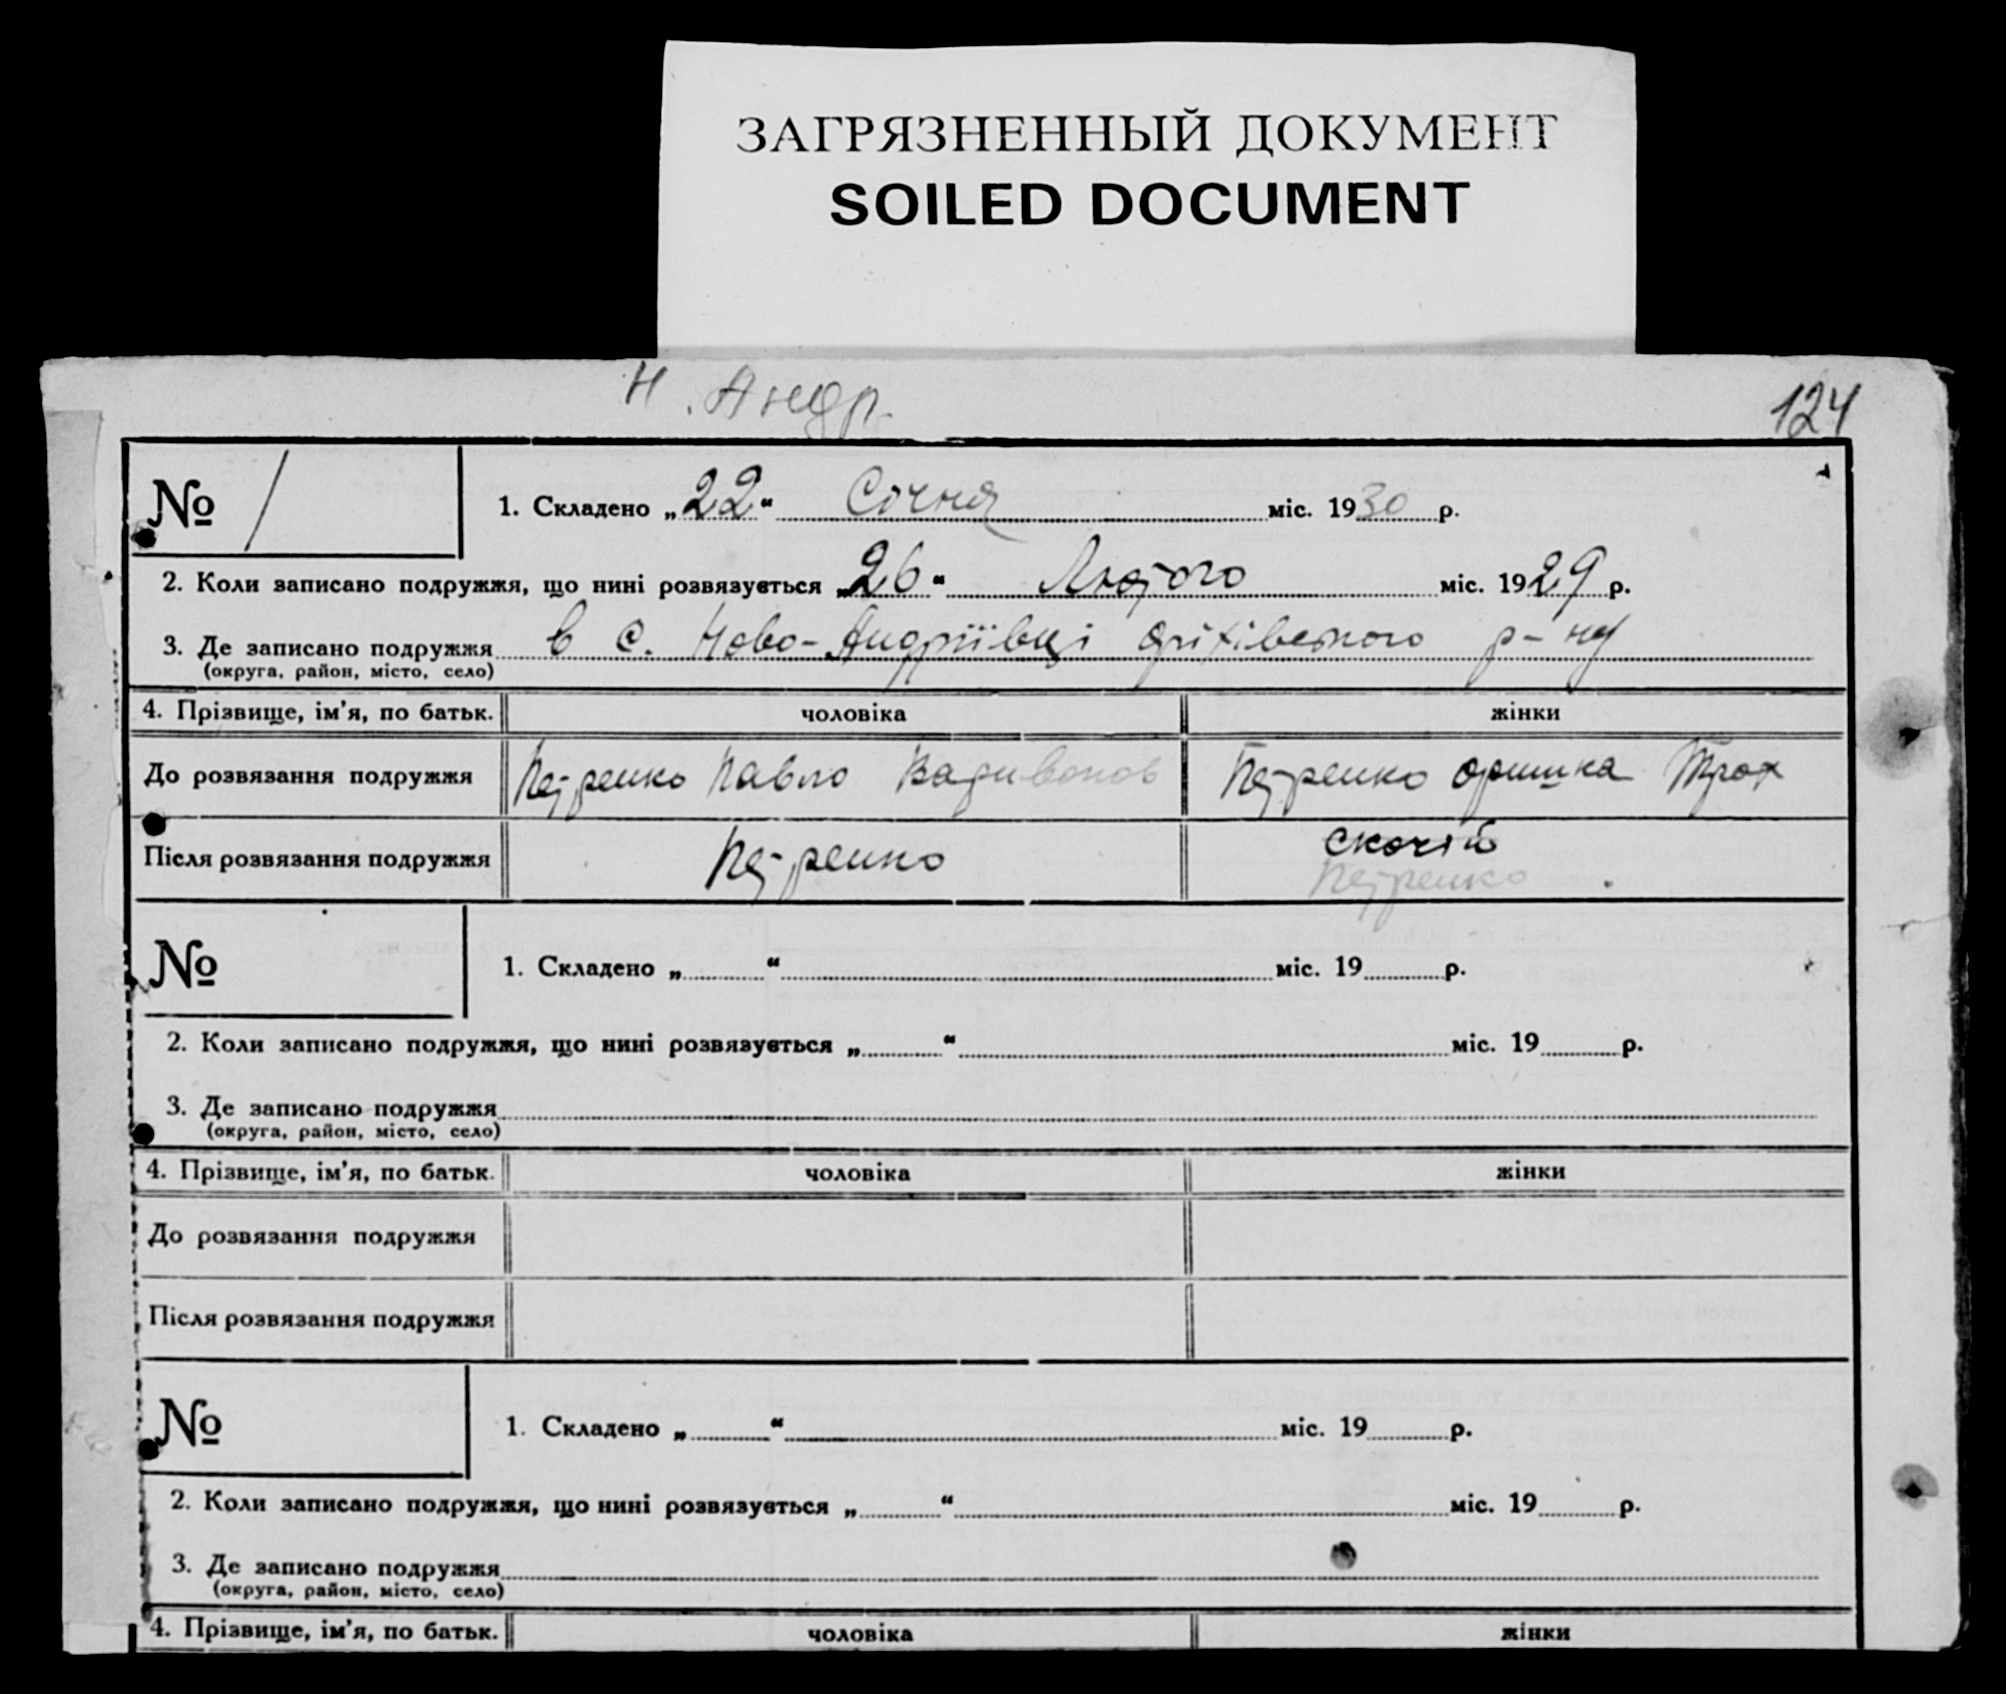 ЗАГРЯЗНЕННЫЙ ДОКУМЕНТ
SOILED DOCUMENT
Н. Андр.
124
№ 1
1. Складено „22“ Січня міс. 1930 р.
2. Коли записано подружжя, що нині розвязується „26“ Лютого міс. 1929 р.
3. Де записано подружжя в с. Ново-Андріївці Оріхівського р-ну
(округа, район, місто, село)
4. Прізвище, ім’я, по батьк. чоловіка жінки
До розвязання подружжя Петренко Павло Варивонов Петренко Оришка Трох
Після розвязання подружжя Петренко скочій
Петренко
№
1. Складено „ “ міс. 19 р.
2. Коли записано подружжя, що нині розвязується „ “ міс. 19 р.
3. Де записано подружжя
(округа, район, місто, село)
4. Прізвище, ім’я, по батьк. чоловіка жінки
До розвязання подружжя
Після розвязання подружжя
№
1. Складено „ “ міс. 19 р.
2. Коли записано подружжя, що нині розвязується „ “ міс. 19 р.
3. Де записано подружжя
(округа, район, місто, село)
4. Прізвище, ім’я, по батьк. чоловіка жінки